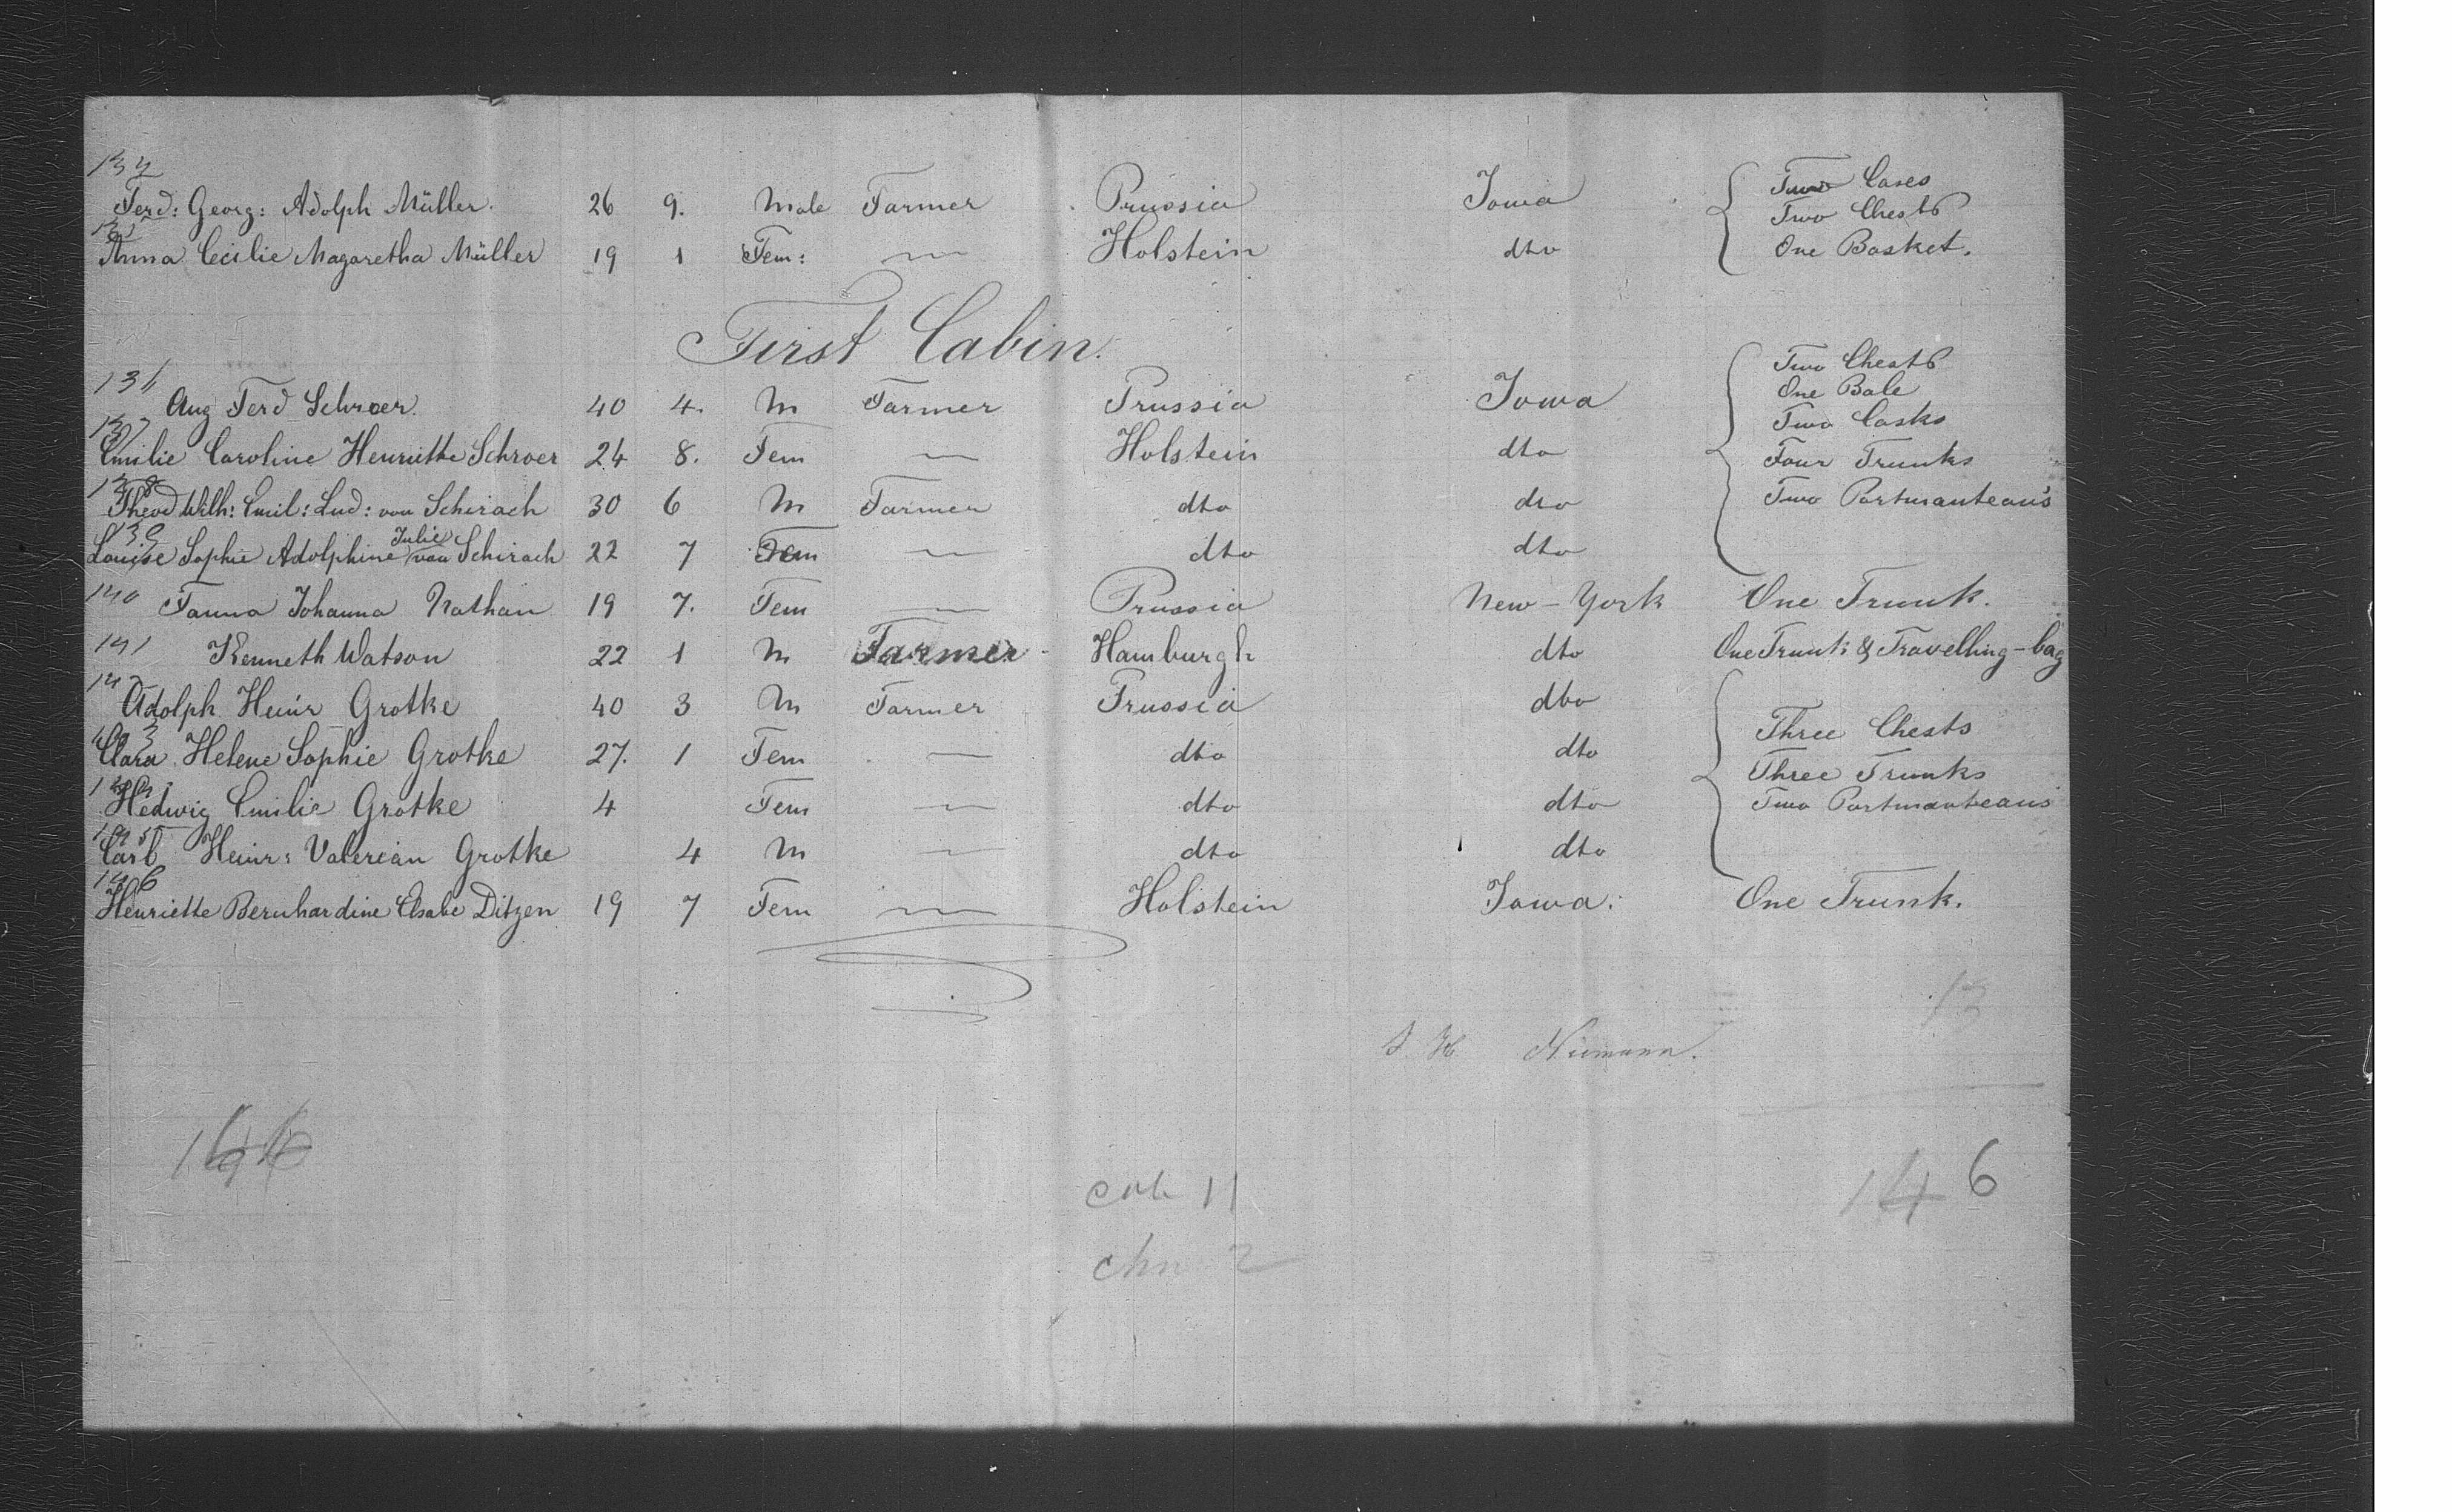 134
Ferd: Georg: Adolph Müller. 26 9. Male Farmer Prussia Iowa Two Cases
Two Chests
135
Anna Cecilie Magaretha Müller 19 1 Fem: — Holstein dto One Basket.
First Cabin.
136 Two Chests
One Bale
Aug Ferd Schroer. 40 4. M Farmer Prussia Iowa Two Casks
137
Emilie Caroline Henriette Schroer 24 8. Fem — Holstein dto Four Trunks
138
Theod Wilh: Emil: Lud: von Schirach 30 6 M Farmer dto dto Two Portmanteau's
139 Julie
Louise Sophie Adolphine von Schirach 22 7 Fem — dto dto
140 Fanna Johanna Nathan 19 7. Fem — Prussia New-York One Trunk.
141 Kenneth Watson 22 1 M Farmer Hamburgh dto One Trunk & Travelling-bag
142
Adolph Heinr Grotke 40 3 M Farmer Prussia dto
143
Clara Helene Sophie Grotke 27. 1 Fem — dto dto Three Chests
Three Trunks
144
Hedwig Emilie Grotke 4 Fem — dto dto Two Portmanteaus
145
Carl Heinr: Valerian Grotke 4 M — dto dto
146
Henriette Bernhardine Elsabe Ditzen 19 7 Fem — Holstein Iowa: One Trunk.
13
Niemann.
146
11
chn 2